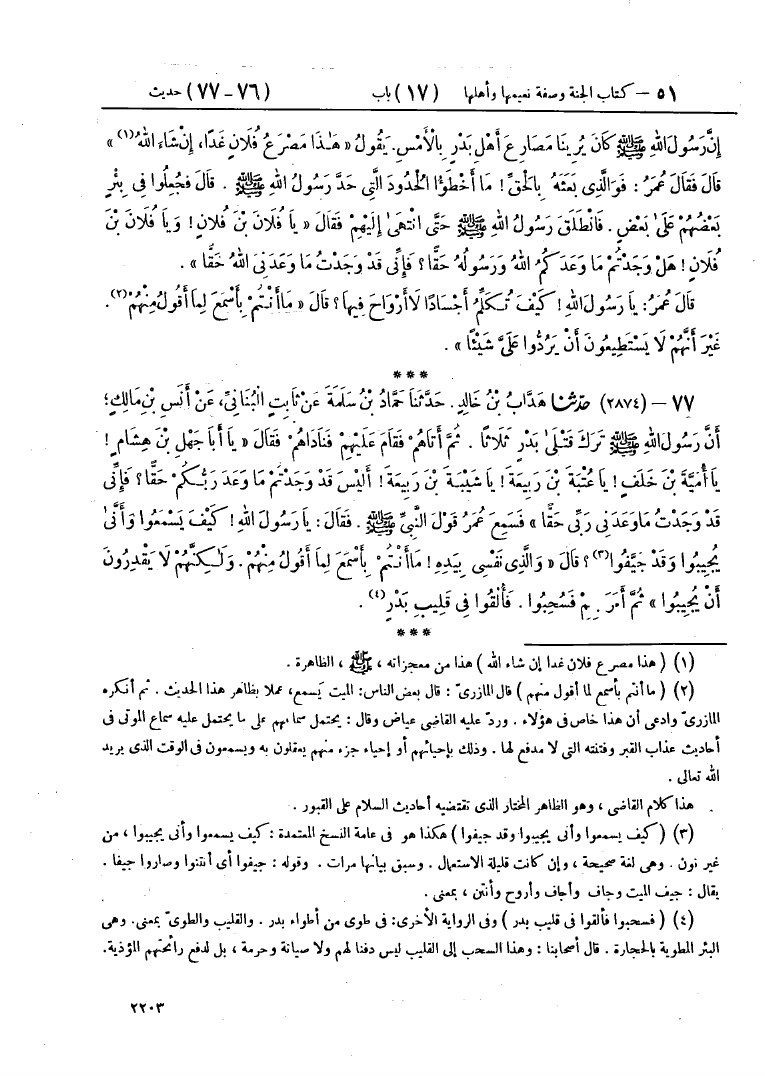 ٥١ – كتاب الجنة وصفة نعيمها وأهلها (١٧) باب (٧٦-٧٧) حديث
إِنَّ رَسُولَ اللهِ ﷺ كَانَ يُرِينَا مَصَارِعَ أَهْلِ بَدْرٍ بِالْأَمْسِ. يَقُولُ « هَٰذَا مَصْرَعُ فُلَانٍ غَدًا، إِنْ شَاءَ اللهُ(١) »
قَالَ فَقَالَ عُمَرُ : فَوَالَّذِى بَعَثَهُ بِالْحَقِّ ! مَا أَخْطَؤُا الْحُدُودَ الَّتِى حَدَّ رَسُولُ اللهِ ﷺ . قَالَ فَجُعِلُوا فِى بِئْرٍ
بَعْضُهُمْ عَلَىٰ بَعْضٍ . فَانْطَلَقَ رَسُولُ اللهِ ﷺ حَتَّىٰ انْتَهَىٰ إِلَيْهِمْ فَقَالَ « يَا فُلَانَ بْنَ فُلَانٍ ! وَيَا فُلَانَ بْنَ
فُلَانٍ ! هَلْ وَجَدْتُمْ مَا وَعَدَكُمُ اللهُ وَرَسُولُهُ حَقًّا ؟ فَإِنِّى قَدْ وَجَدْتُ مَا وَعَدَنِى اللهُ حَقًّا » .
قَالَ عُمَرُ : يَا رَسُولَ اللهِ ! كَيْفَ تُكَلِّمُ أَجْسَادًا لَا أَرْوَاحَ فِيهَا ؟ قَالَ « مَا أَنْتُمْ بِأَسْمَعَ لِمَا أَقُولُ مِنْهُمْ(٢).
غَيْرَ أَنَّهُمْ لَا يَسْتَطِيعُونَ أَنْ يَرُدُّوا عَلَىَّ شَيْئًا » .
***
٧٧ – (٢٨٧٤) حدّثنا هَدَّابُ بْنُ خَالِدٍ . حَدَّثَنَا حَمَّادُ بْنُ سَلَمَةَ عَنْ ثَابِتٍ الْبُنَانِىِّ، عَنْ أَنَسِ بْنِ مَالِكٍ؛
أَنَّ رَسُولَ اللهِ ﷺ تَرَكَ قَتْلَىٰ بَدْرٍ ثَلَاثًا . ثُمَّ أَتَاهُمْ فَقَامَ عَلَيْهِمْ فَنَادَاهُمْ فَقَالَ « يَا أَبَا جَهْلِ بْنَ هِشَامٍ !
يَا أُمَيَّةَ بْنَ خَلَفٍ ! يَا عُتْبَةَ بْنَ رَبِيعَةَ ! يَا شَيْبَةَ بْنَ رَبِيعَةَ ! أَلَيْسَ قَدْ وَجَدْتُمْ مَا وَعَدَ رَبُّكُمْ حَقًّا ؟ فَإِنِّى
قَدْ وَجَدْتُ مَا وَعَدَنِى رَبِّى حَقًّا » فَسَمِعَ عُمَرُ قَوْلَ النَّبِىِّ ﷺ . فَقَالَ : يَا رَسُولَ اللهِ ! كَيْفَ يَسْمَعُوا وَأَنَّىٰ
يُجِيبُوا وَقَدْ جَيَّفُوا(٣) ؟ قَالَ « وَالَّذِى نَفْسِى بِيَدِهِ ! مَا أَنْتُمْ بِأَسْمَعَ لِمَا أَقُولُ مِنْهُمْ . وَلَٰكِنَّهُمْ لَا يَقْدِرُونَ
أَنْ يُجِيبُوا » ثُمَّ أَمَرَ بِهِمْ فَسُحِبُوا . فَأُلْقُوا فِى قَلِيبِ بَدْرٍ(٤) .
***
(١) ( هذا مصرع فلان غدا إن شاء الله ) هذا من معجزاته ، ﷺ ، الظاهرة .
(٢) ( ما أنتم بأسمع لما أقول منهم ) قال المازرىّ : قال بعض الناس: الميت يسمع، عملا بظاهر هذا الحديث . ثم أنكره
المازرىّ وادعى أن هذا خاص فى هؤلاء . وردّ عليه القاضى عياض وقال : يحتمل سماعهم على ما يحتمل عليه سماع الموتى فى
أحاديث عذاب القبر وفتنته التى لا مدفع لها . وذلك بإحيائهم أو إحياء جزء منهم يعقلون به ويسمعون فى الوقت الذى يريد
الله تعالى .
هذا كلام القاضى ، وهو الظاهر المختار الذى تقتضيه أحاديث السلام على القبور .
(٣) ( كيف يسمعوا وأنى يجيبوا وقد جيفوا ) هكذا هو فى عامة النسخ المعتمدة : كيف يسمعوا وأنى يجيبوا ، من
غير نون . وهى لغة صحيحة ، وإن كانت قليلة الاستعمال . وسبق بيانها مرات . وقوله : جيفوا أى أنتنوا وصاروا جيفا .
يقال : جيف الميت وجاف وأجاف وأروح وأنتن ، بمعنى .
(٤) ( فسحبوا فألقوا فى قليب بدر ) وفى الرواية الأخرى: فى طوى من أطواء بدر . والقليب والطوىّ بمعنى. وهى
البئر المطوية بالحجارة . قال أصحابنا : وهذا السحب إلى القليب ليس دفنا لهم ولا صيانة وحرمة ، بل لدفع رائحتهم المؤذية.
٢٢٠٣